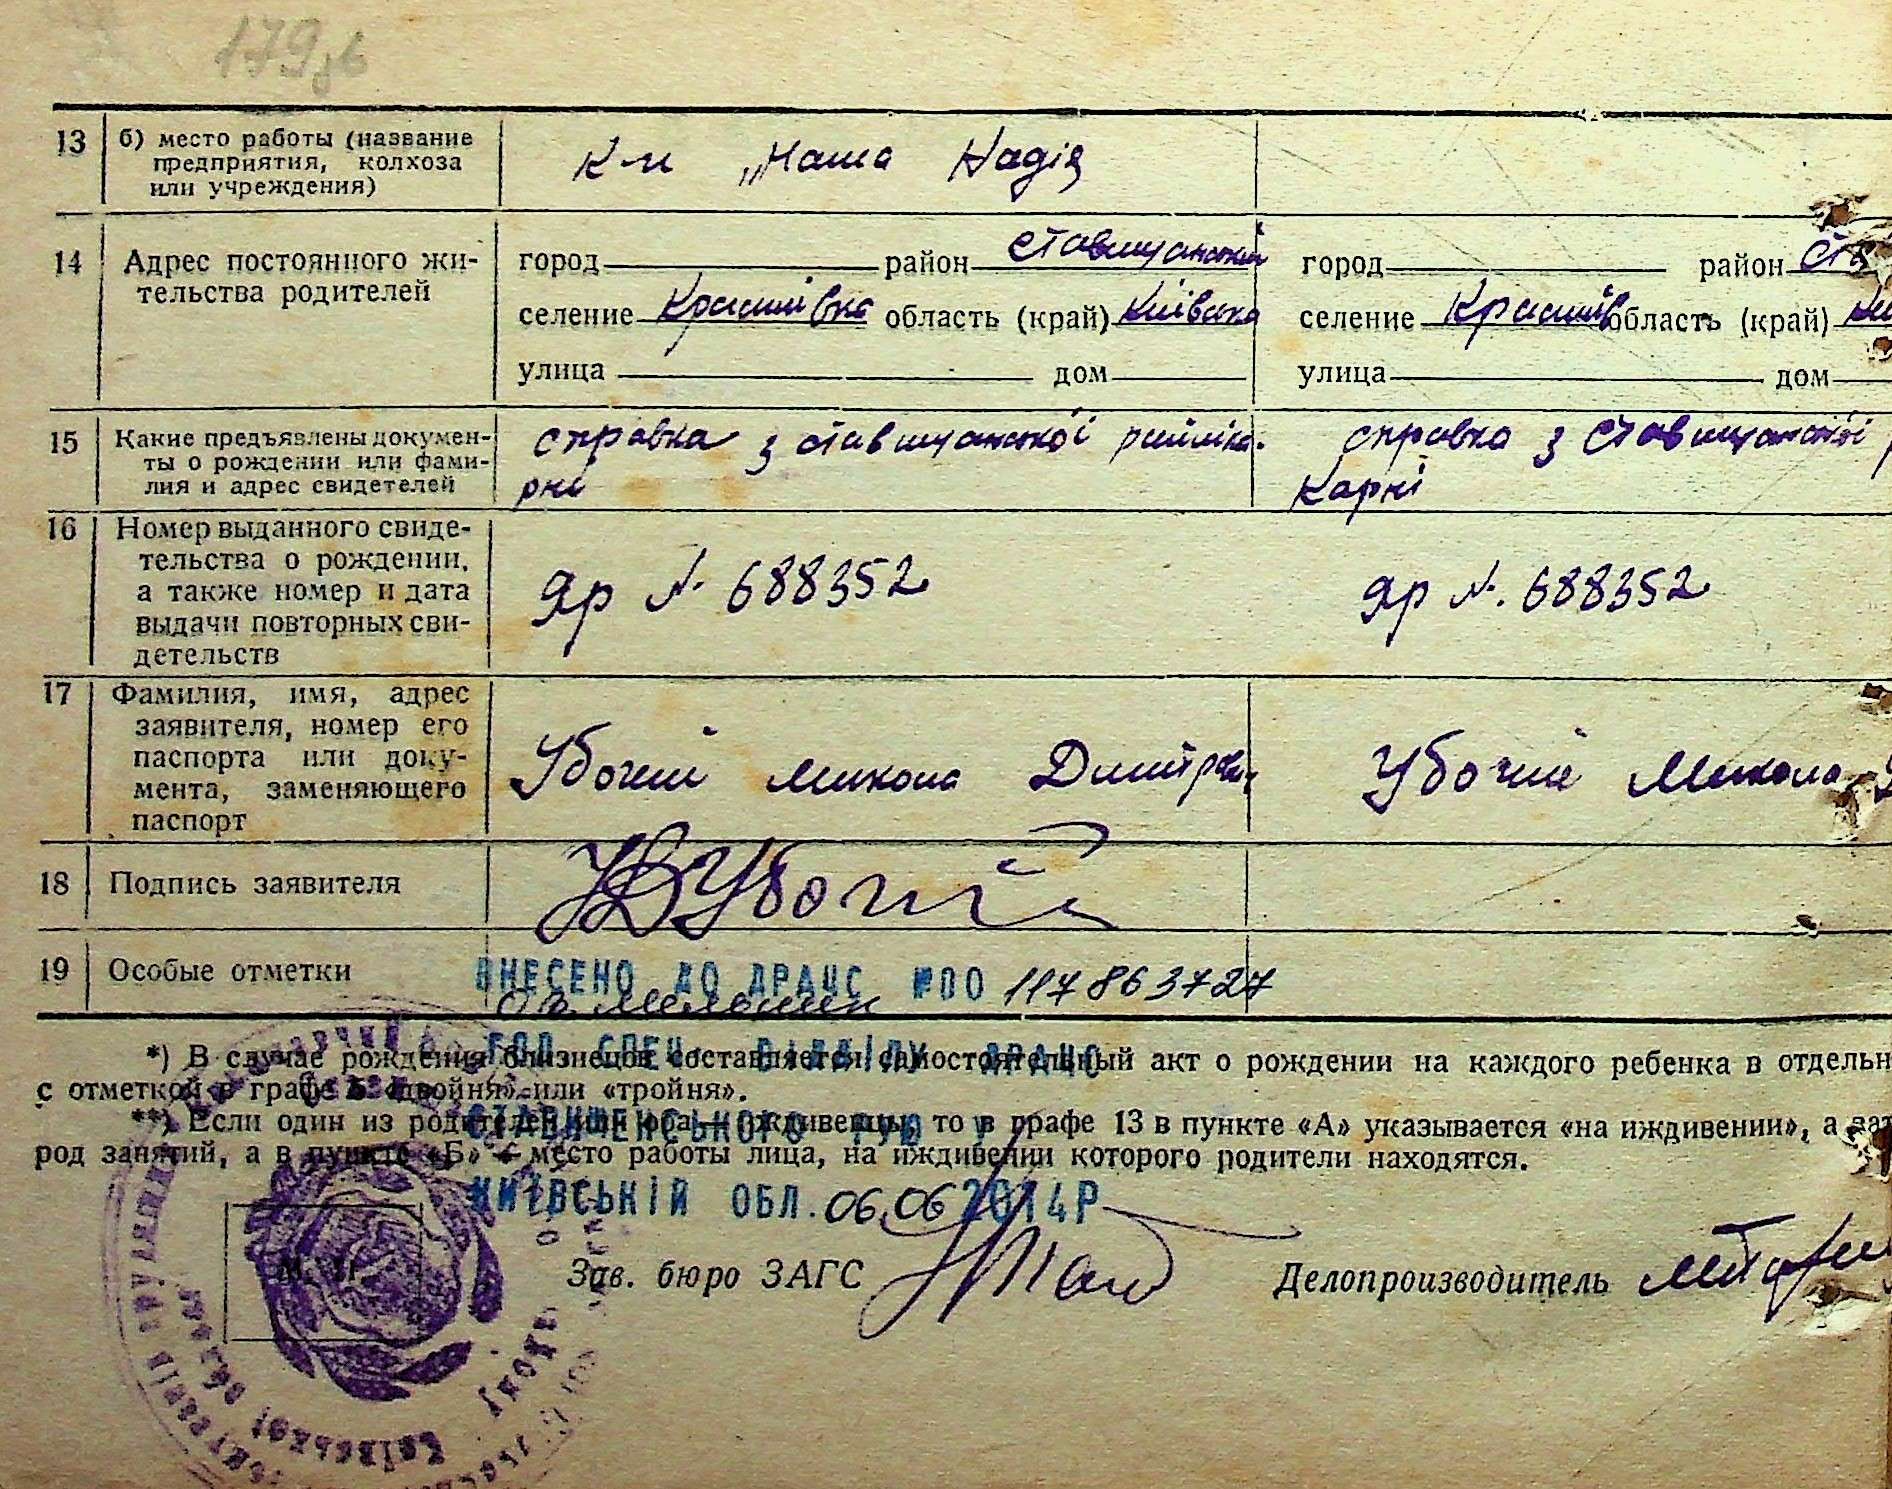 179 зв
13 б) место работы (название предприятия, колхоза или учреждения)
к-п „Наша Надія
14 Адрес постоянного жи-
тельства родителей
город район Ставищанський город район Ста
селение Красилівка область (край) Київська селение Красилів область (край) Ки
улица дом улица дом
15 Какие предъявлены докумен-
ты о рождении или фами-
лия и адрес свидетелей
справка з Ставищанської райліка- справка з Ставищанської р
рні карні
16 Номер выданного свиде-
тельства о рождении,
а также номер и дата
выдачи повторных сви-
детельств
ЯР № 688352 ЯР №. 688352
17 Фамилия, имя, адрес
заявителя, номер его
паспорта или доку-
мента, заменяющего
паспорт
Убогий Микола Дмитрови Убогий Микола Д
18 Подпись заявителя
Убогий
19 Особые отметки
ВНЕСЕНО ДО ДРАЦС №00 117863727
*) В случае рождения близнецов составляется самостоятельный акт о рождении на каждого ребенка в отдельн
с отметкой в графе 5 «двойня» или «тройня».
**) Если один из родителей или оба — иждивенцы, то в графе 13 в пункте «А» указывается «на иждивении», а зат
род занятий, а в пункте «Б» — место работы лица, на иждивении которого родители находятся.
ГОЛ. СПЕЦ. ВІДДІЛУ ДРАЦС
СТАВИЩЕНСЬКОГО РУЮ У
КИЇВСЬКІЙ ОБЛ. 06.06 2014Р
М. П.
Зав. бюро ЗАГС
Делопроизводитель